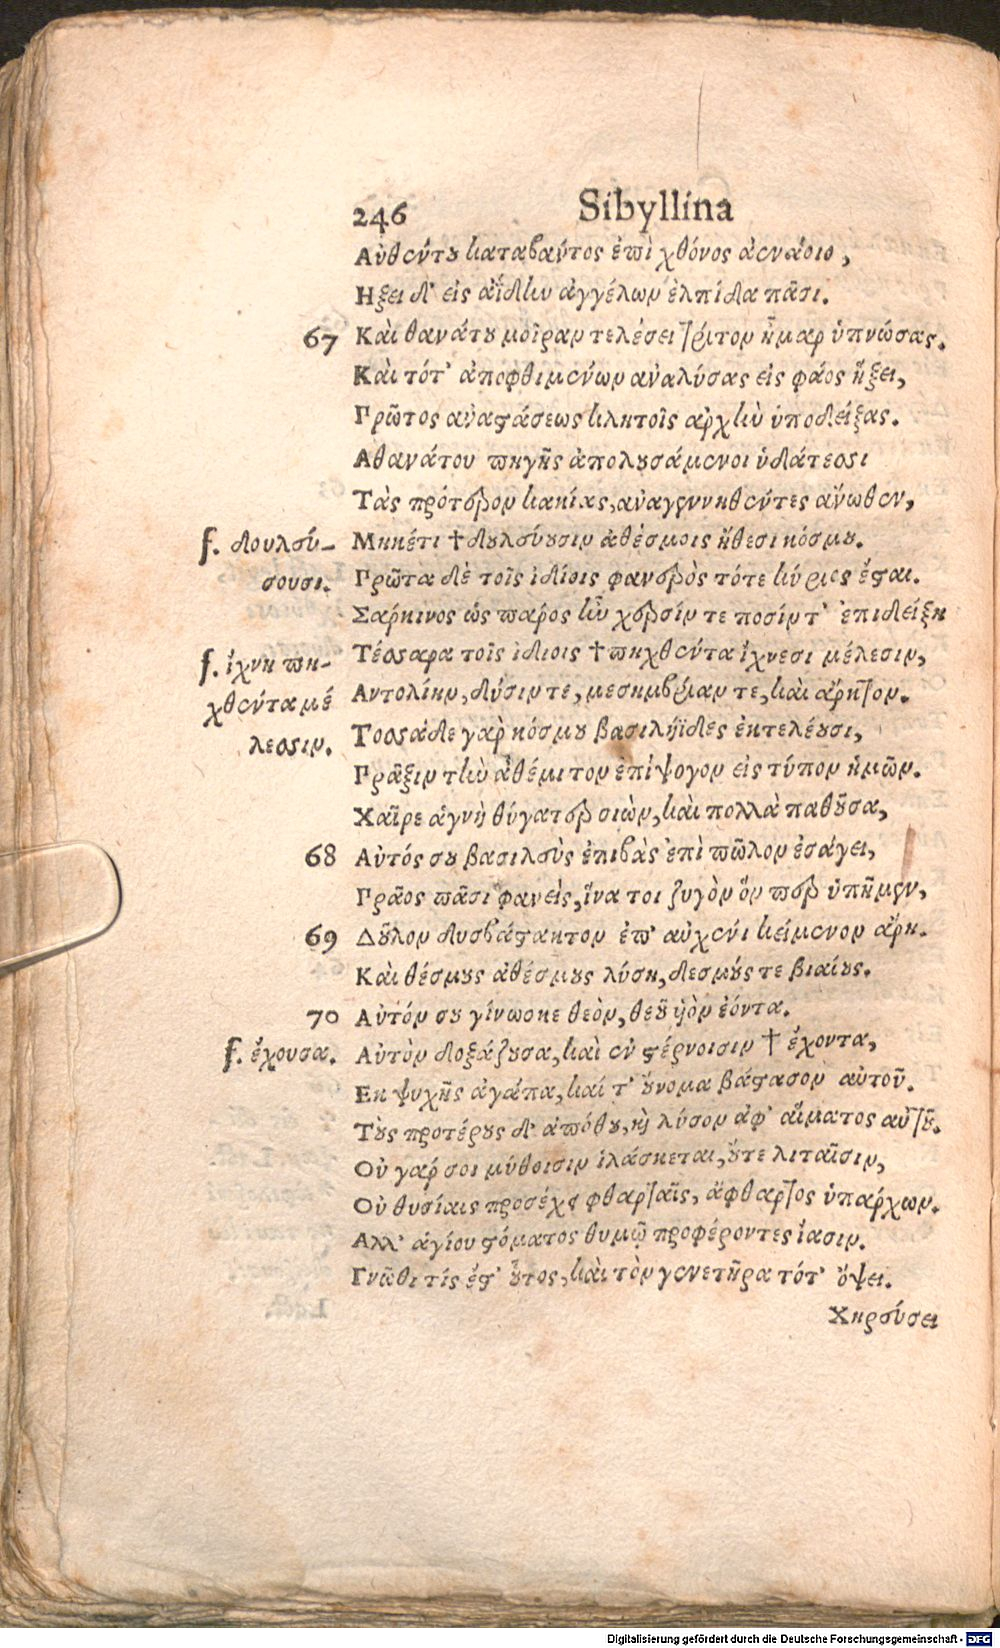 246 Sibyllina
Αὐθέντου καταβαύτος ἐπὶ χθόνος ἀενάοιο,
Ηξει δ' εἰς ἀΐδην ἀγγέλων ἐλπίδα πᾶσι.
67 Καὶ θανάτου μοῖραν τελέσει τρίτον ἦμαρ ὑπνώσας.
Καὶ τότ' ἀποφθιμένων ἀναλύσας εἰς φάος ἥξει,
Πρῶτος ἀναστάσεως κλητοῖς ἀρχὴν ὑποδείξας.
Αθανάτου πηγῆς ἀπολουσάμενοι ὑδάτεσσι
Τὰς πρότερον κακίας, ἀναγεννηθέντες ἄνωθεν,
f. δουλεύ- Μηκέτι † δουλεύουσιν ἀθέσμοις ἤθεσι κόσμου.
σουσι. Πρῶτα δὲ τοῖς ἰδίοις φανερὸς τότε κύριος ἔσται.
Σαρκινος ὡς πάρος ἦν χερσίν τε ποσίν τ' ἐπιδείξη
f. ἴχνη πη- Τέσσαρα τοῖς ἰδιοις † πηχθέντα ἴχνεσι μέλεσιν,
χθένταμέ Αντολίην, δύσιν τε, μεσημβρίαν τε, καὶ ἄρκτον.
λεσσιν. Τοσσάδε γαρ κόσμου βασιλήϊδες ἐκτελέουσι,
Πρᾶξιν τὴν ἀθέμιτον ἐπίψογον εἰς τύπον ἡμῶν.
Χαῖρε ἁγνὴ θύγατερ σιὼν, καὶ πολλὰ παθοῦσα,
68 Αὐτός σου βασιλεὺς ἐπιβὰς ἐπὶ πῶλον ἐσάγει,
Πρᾶος πᾶσι φανείς, ἵνα τοι ζυγὸν ὅν περ ὑπῆμεν,
69 Δοῦλον δυσβάστακτον ἐπ' αὐχένι κείμενον ἄρη.
Καὶ θέσμους ἀθέσμους λύσῃ, δεσμούς τε βιαίους.
70 Αὐτόν σου γίνωσκε θεὸν, θεοῦ ὑὸν ἐόντα.
f. ἔχουσα. Αὐτὸν δοξάζουσα, καὶ ἐν στέρνοισιν † ἔχοντα,
Εκ ψυχῆς ἀγάπα, καί τ' οὔνομα βάστασον αὐτοῦ.
Τοὺς προτέρους δ' ἀπόθου, καὶ λύσον ἀφ' αἵματος αὐτοῦ.
Οὐ γαρ σοι μύθοισιν ἱλάσκεται, οὔτε λιταῖσιν,
Οὐ θυσίαις προσέχει φθαρταῖς, ἄφθαρτος ὑπάρχων.
Αλλ' ἁγίου στόματος θυμῷ προφέροντες ἴασιν.
Γνῶθι τίς ἐστ' οὗτος, καὶ τὸν γενετῆρα τότ' ὄψει.
Χηρεύσει
Digitalisierung gefördert durch die Deutsche Forschungsgemeinschaft - DFG